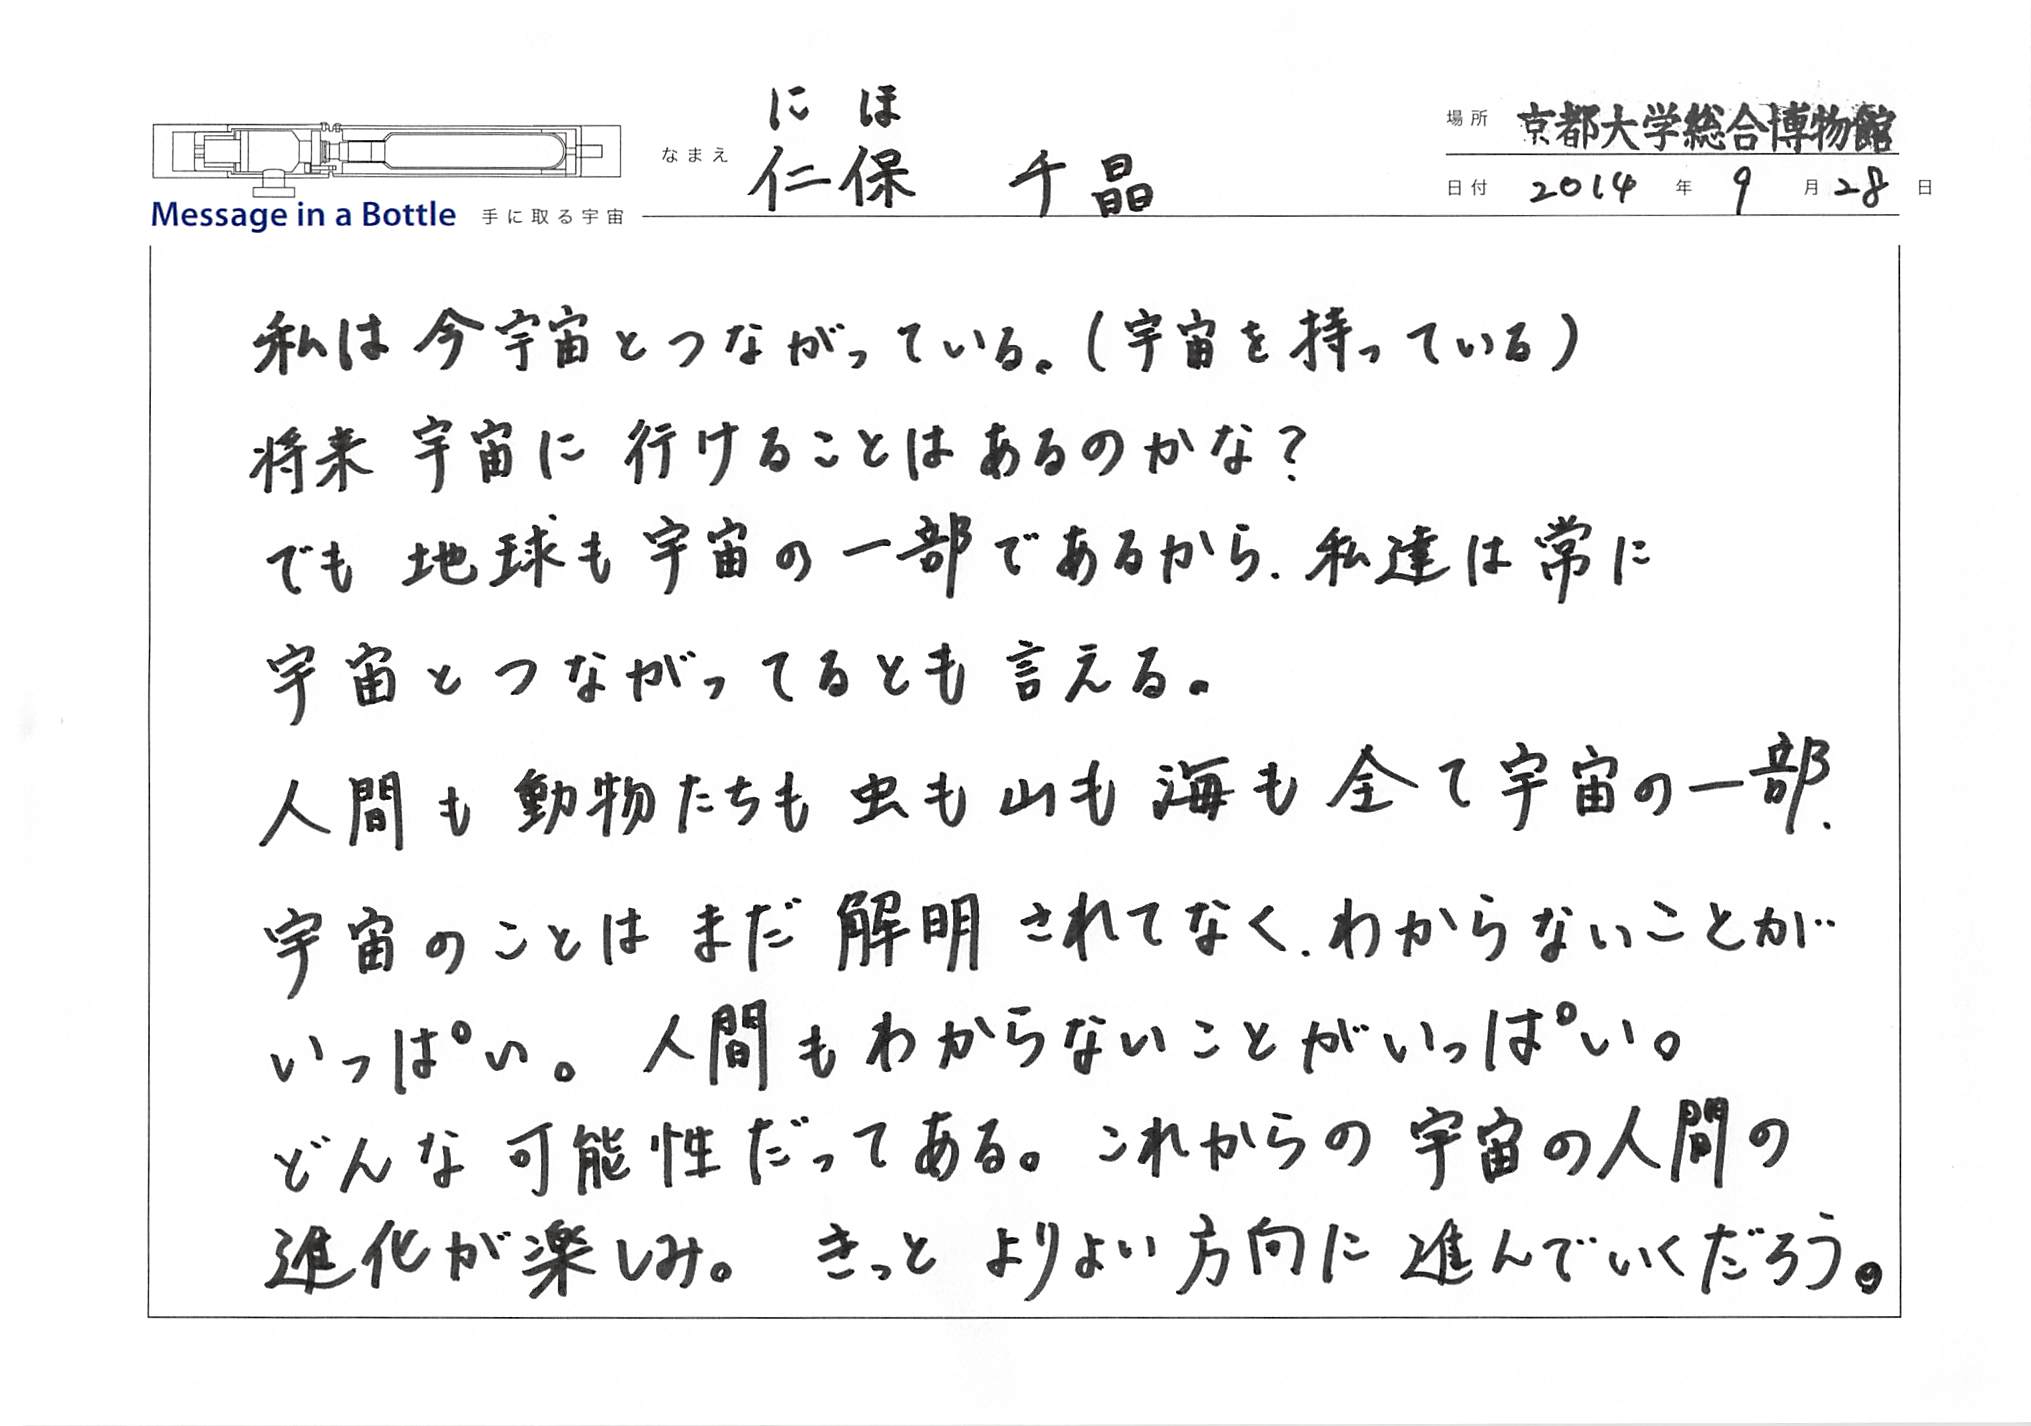 にほ
なまえ 仁保 千晶
場所 京都大学総合博物館
日付 2014 年 9 月 28 日
Message in a Bottle 手に取る宇宙
私は今宇宙とつながっている。(宇宙を持っている)
将来 宇宙に 行けることはあるのかな?
でも 地球も宇宙の一部であるから、私達は常に
宇宙とつながってるとも言える。
人間も動物たちも虫も山も海も全て宇宙の一部、
宇宙のことは まだ 解明 されてなく、わからないことが
いっぱい。 人間もわからないことがいっぱい。
どんな可能性だってある。これからの宇宙の人間の
進化が楽しみ。 きっと よりよい方向に進んでいくだろう。